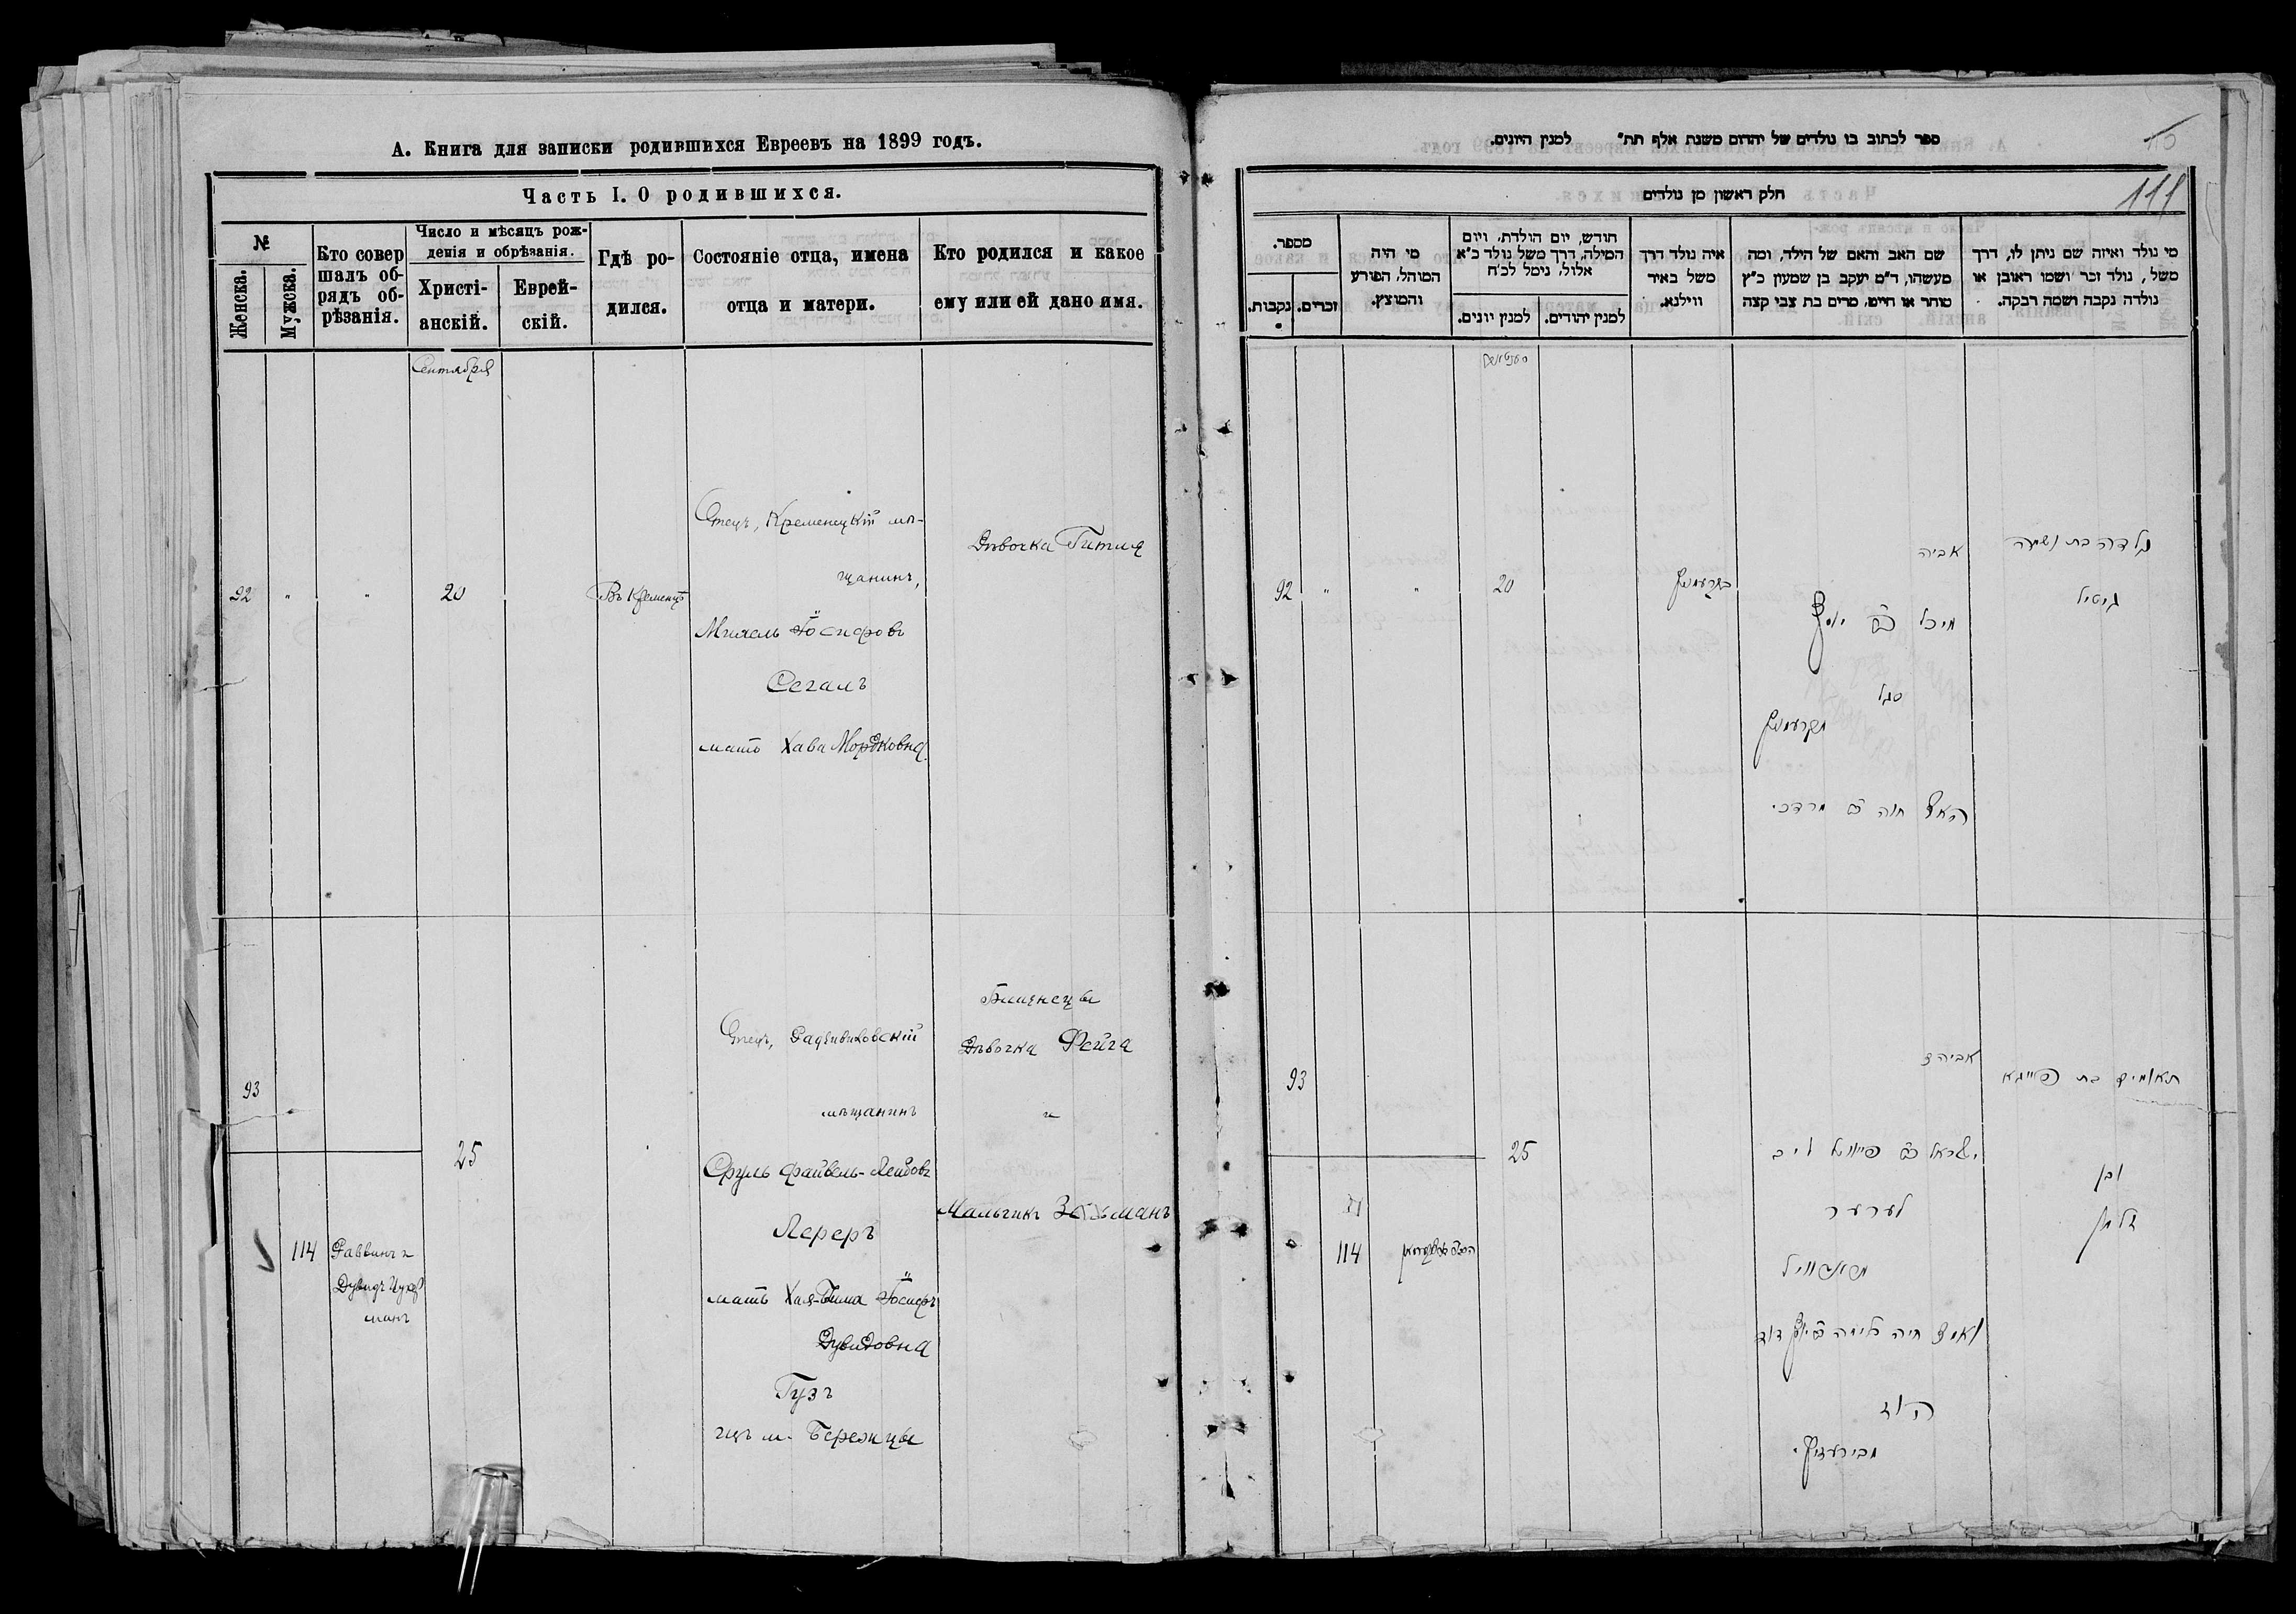 А. Книга для записки родившихся Евреевъ на 1899 годъ.
Часть I. О родившихся.
№
Женска.
Мужска.
Кто совер
шалъ об-
рядъ об-
рѣзанія.
Число и мѣсяцъ рож-
денія и обрѣзанія.
Христі-
анскій.
Еврей-
скій.
Гдѣ ро-
дился.
Состояніе отца, имена
отца и матери.
Кто родился и какое
ему или ей дано имя.
Сентября
92 " " 20 Въ Кременцѣ
Отецъ, Кременецкій мѣ-
щанинъ,
Михель Іосифовъ
Сегалъ
мать Хава Мордковна
Дѣвочка Гитля
93
25
114 Раввинъ и
Дувидъ
манъ
Отецъ, Радзивиловскій
мѣщанинъ
Сруль Файвель-Лейбовъ
Лереръ
мать Хая- Іосифъ
Дувидовна
Гузъ
изъ м. Бережцы
Близнецы
Дѣвочка Фейга
и
Мальчикъ Зельманъ
ספר לכתוב בו נולדים של יהדים משנת אלף תת״ למנין היונים.
15
111
חלק ראשון מן נולדים
מספר.
נקבות.
זכרים.
מי היה
המוהל, הפורע
והמוצץ.
חודש, יום הולדת, ויום
המילה, דרך משל נולד כ״א
אלול, נימל לכ״ח
למנין יונים.
למנין יהודים.
איה נולד דרך
משל באיד
ווילנא.
שם האב והאם של הילד, ומה
מעשהו, ד״מ יעקב בן שמעון כ״ץ
סוחר או חייט, מרים בת צבי קצה
מי נולד ואיזה שם ניתן לו, דרך
משל, נולד זכר ושמו ראובן או
נולדה נקבה ושמה רבקה.
92 " " 20 בקרעמניץ
אביה
מיכל ב״ר יוסף
סגל
מקרעמניץ
האם חוה ב״ר מרדכי.
נולדה בת ושמה
גיטיל
93
25
114
אביהם
ישראל ב״ר פייוויל ליב
לערער
ואמם חיה ב״ר יוסף דוד
הוז
תאומים בת פייגא
ובן
זלמן